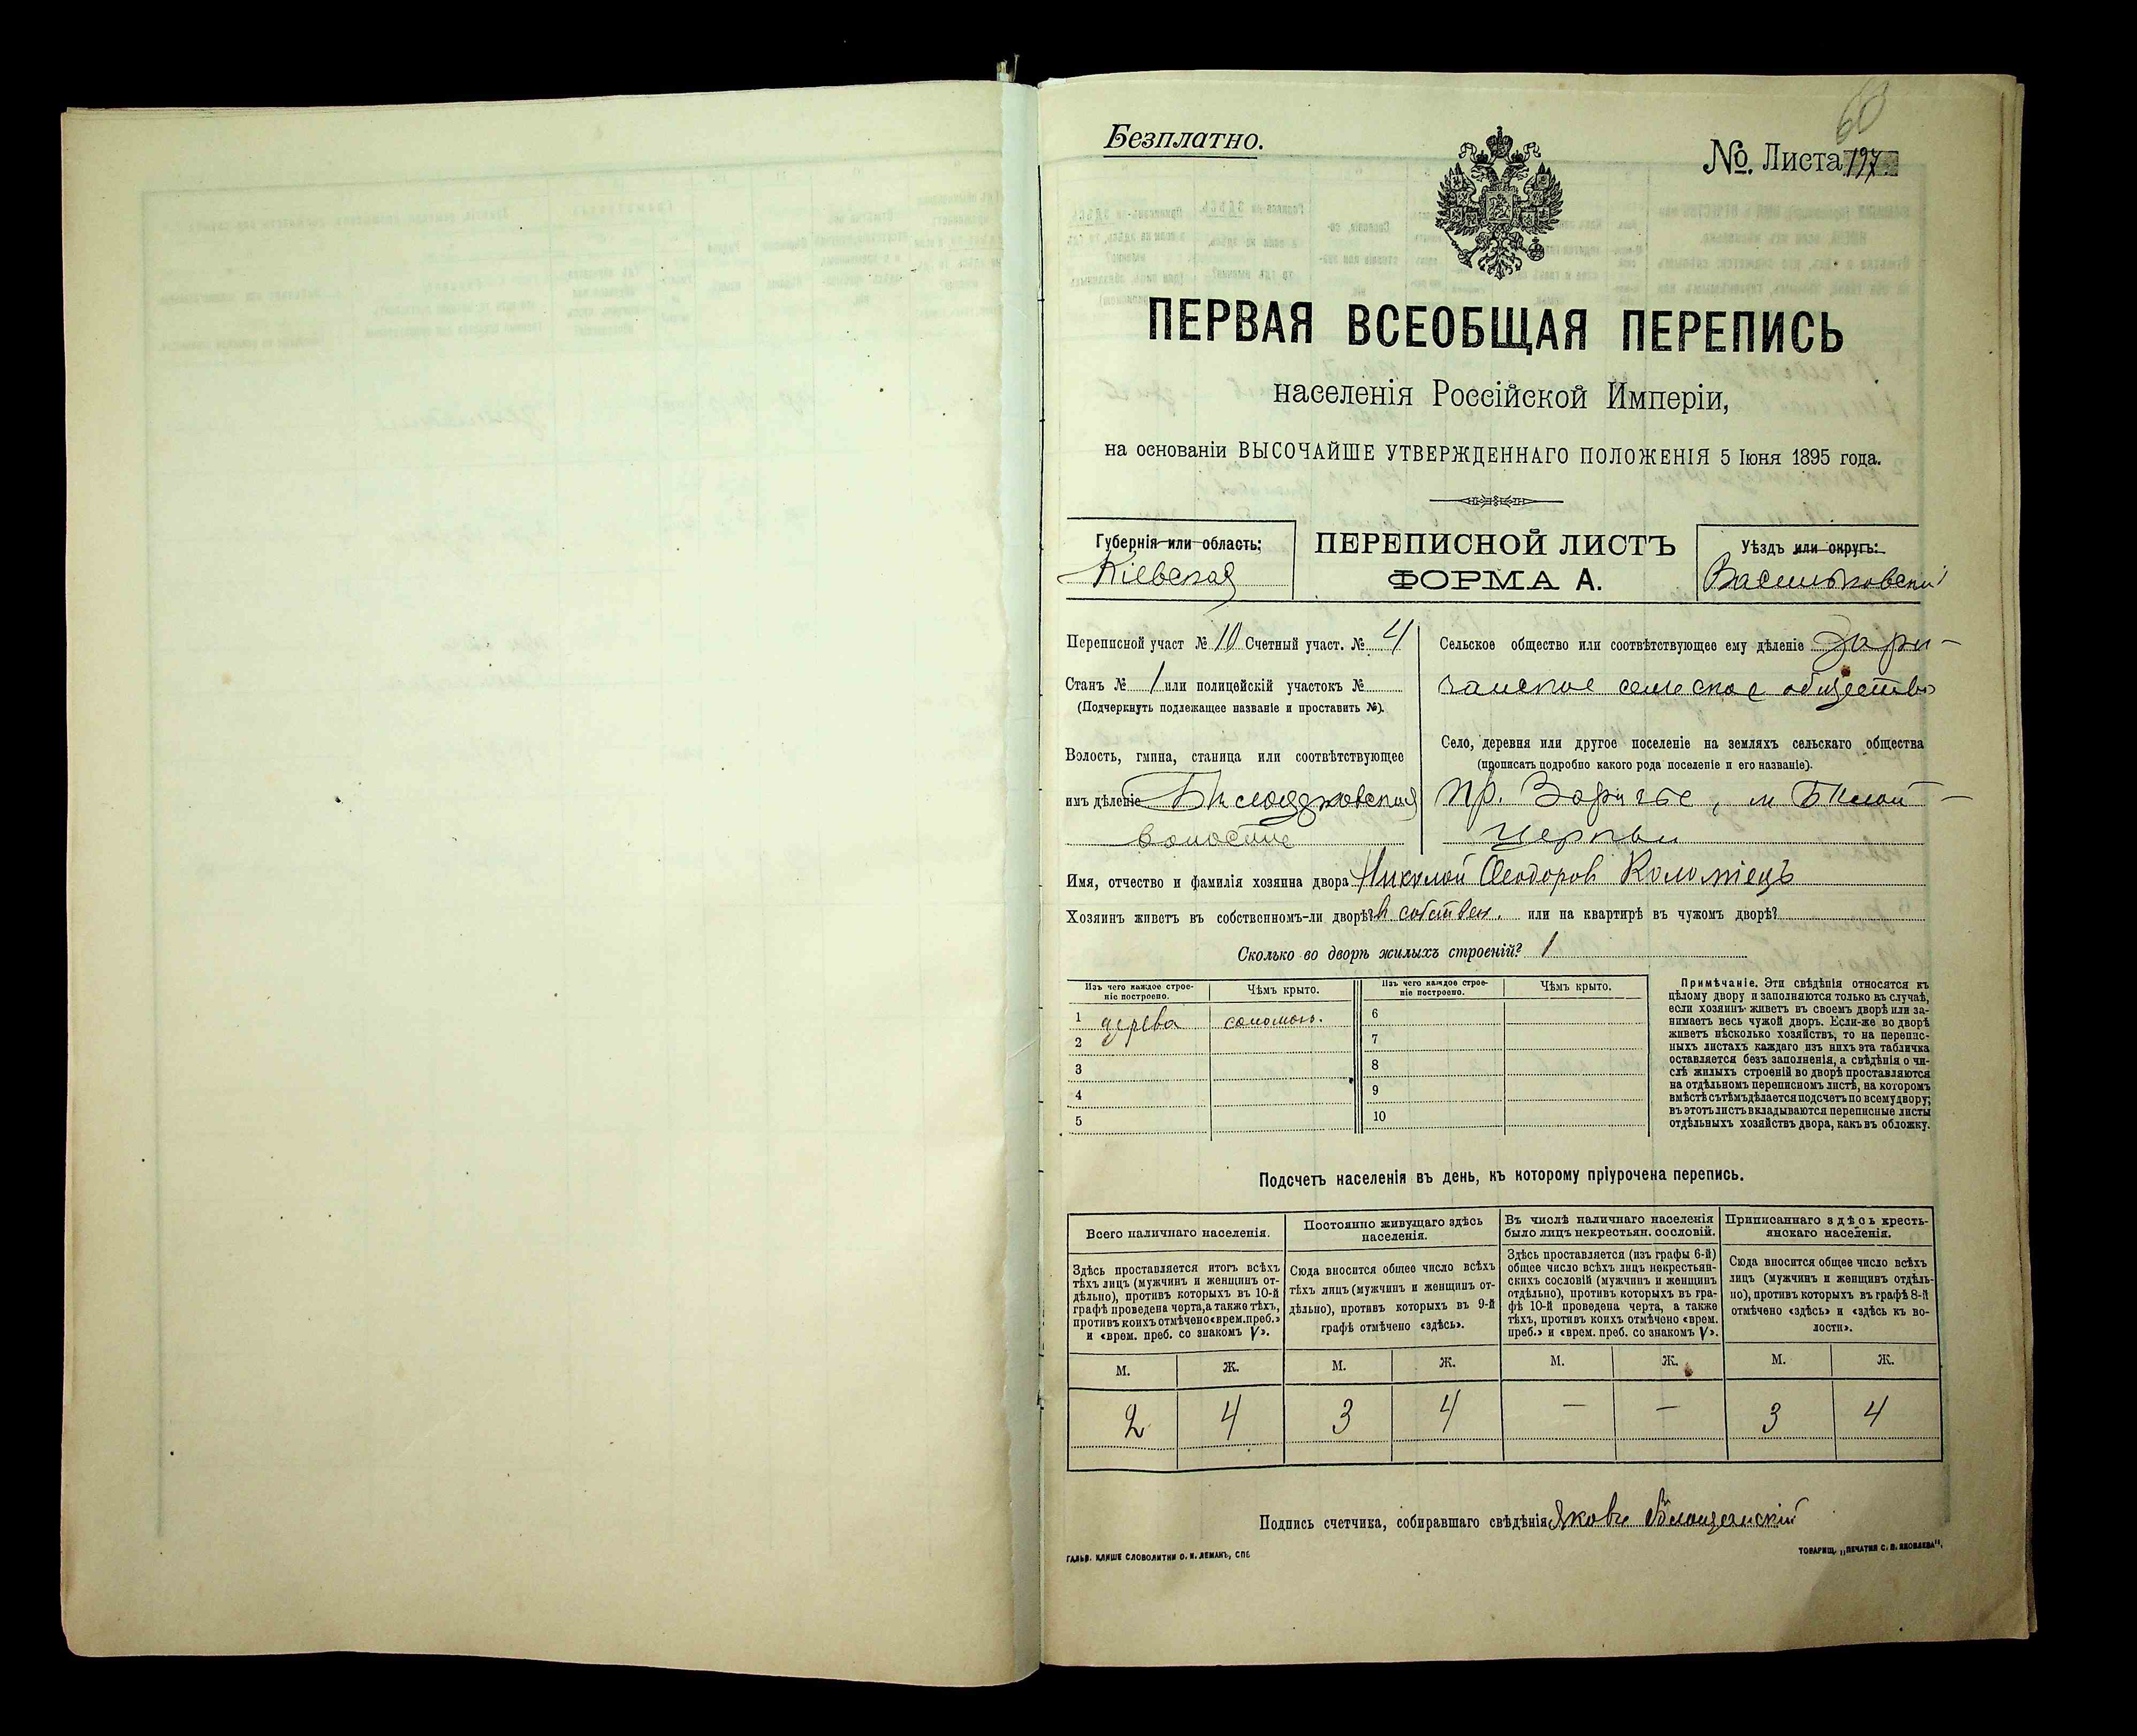 60
Безплатно.
№ Листа 197
ПЕРВАЯ ВСЕОБЩАЯ ПЕРЕПИСЬ
населенія Россійской Имперіи,
на основаніи ВЫСОЧАЙШЕ УТВЕРЖДЕННАГО ПОЛОЖЕНІЯ 5 Іюня 1895 года.
Губернія или область:
Кіевская
ПЕРЕПИСНОЙ ЛИСТЪ
ФОРМА А.
Уѣздъ или округъ:
Васильковскій
Переписной участ № 10 Счетный участ. № 4
Станъ № 1 или полицейскій участокъ №
(Подчеркнуть подлежащее названіе и проставить №).
Волость, гмина, станица или соотвѣтствующее
имъ дѣленіе Бѣлоцерковская
волость
Сельское общество или соотвѣтствующее ему дѣленіе Зари-
чанское сельское общество
Село, деревня или другое поселеніе на земляхъ сельскаго общества
(прописать подробно какого рода поселеніе и его названіе).
пр. Заричье, м Бѣлой-
Церкви
Имя, отчество и фамилія хозяина двора Николай Ѳеодоров Коломіецъ
Хозяинъ живетъ въ собственномъ-ли дворѣ? в собствен. или на квартирѣ въ чужомъ дворѣ?
Сколько во дворѣ жилыхъ строеній? 1
Изъ чего каждое строе-
ніе построено.
Чѣмъ крыто.
Изъ чего каждое строе-
ніе построено.
Чѣмъ крыто.
1 дерева соломою.
2
3
4
5
6
7
8
9
10
Примѣчаніе. Эти свѣдѣнія относятся къ
цѣлому двору и заполняются только въ случаѣ,
если хозяинъ живетъ въ своемъ дворѣ или за-
нимаетъ весь чужой дворъ. Если-же во дворѣ
живетъ нѣсколько хозяйствъ, то на перепис-
ныхъ листахъ каждаго изъ нихъ эта табличка
оставляется безъ заполненія, а свѣдѣнія о чи-
слѣ жилыхъ строеній во дворѣ проставляются
на отдѣльномъ переписномъ листѣ, на которомъ
вмѣстѣ съ тѣмъ дѣлается подсчетъ по всему двору;
въ этотъ листъ вкладываются переписные листы
отдѣльныхъ хозяйствъ двора, какъ въ обложку.
Подсчетъ населенія въ день, къ которому пріурочена перепись.
Всего наличнаго населенія.
Здѣсь проставляется итогъ всѣхъ
тѣхъ лицъ (мужчинъ и женщинъ от-
дѣльно), противъ которыхъ въ 10-й
графѣ проведена черта, а также тѣхъ,
противъ коихъ отмѣчено «врем. преб.»
и «врем. преб. со знакомъ V».
Постоянно живущаго здѣсь
населенія.
Сюда вносится общее число всѣхъ
тѣхъ лицъ (мужчинъ и женщинъ от-
дѣльно), противъ которыхъ въ 9-й
графѣ отмѣчено «здѣсь».
Въ числѣ наличнаго населенія
было лицъ некрестьян. сословій.
Здѣсь проставляется (изъ графы 6-й)
общее число всѣхъ лицъ некрестьян-
скихъ сословій (мужчинъ и женщинъ
отдѣльно), противъ которыхъ въ гра-
фѣ 10-й проведена черта, а также
тѣхъ, противъ коихъ отмѣчено «врем.
преб.» и «врем. преб. со знакомъ V».
Приписаннаго здѣсь кресть-
янскаго населенія.
Сюда вносится общее число всѣхъ
лицъ (мужчинъ и женщинъ отдѣль-
но), противъ которыхъ въ графѣ 8-й
отмѣчено «здѣсь» и «здѣсь къ во-
лости».
М. Ж. М. Ж. М. Ж. М. Ж.
2 4 3 4 — — 3 4
Подпись счетчика, собиравшаго свѣдѣнія Яковъ
ГАЛЬВ. КЛИШЕ СЛОВОЛИТНИ О. И. ЛЕМАНЪ, СПБ
ТОВАРИЩ. „ПЕЧАТНЯ С. П. ЯКОВЛЕВА".